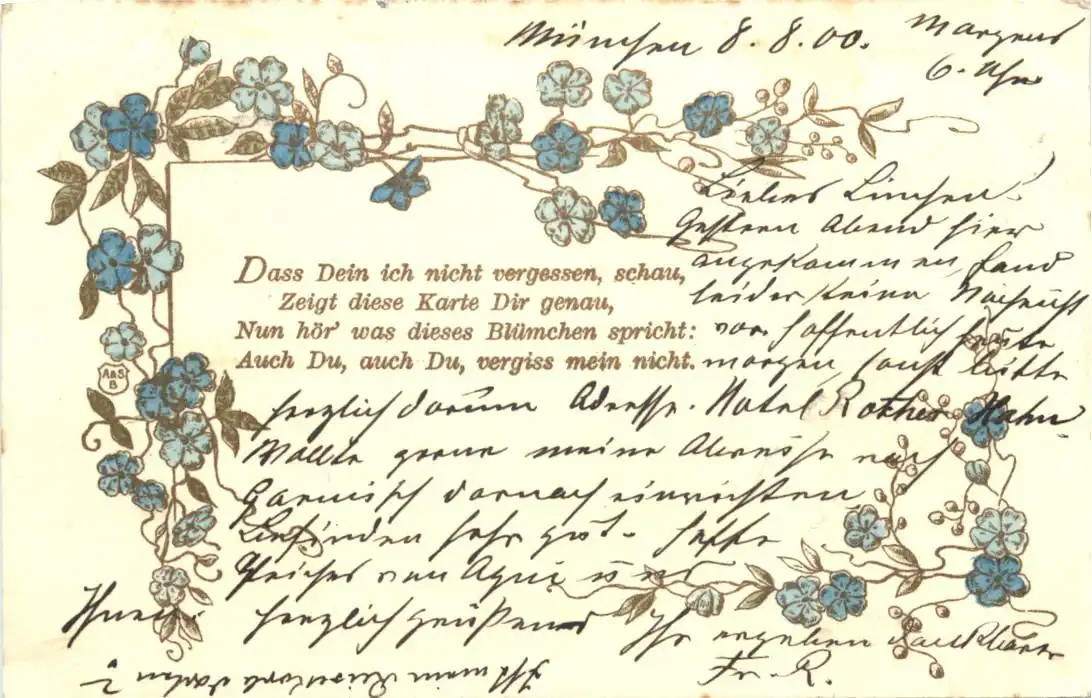 München 8. 8. 00. Morgens
6. Uhr
Liebes Linchen!
Gestern Abend hier
angekommen, fand
leider keine Nachricht
vor. hoffentlich heute
morgen, sonst bitte
herzlich darum Adresse. Hotel Rother Hahn
Wollte gerne meine Abreise nach
Garmisch darnach einrichten
Befinden sehr gut. hoffe
Gleiches von
Ihnen. herzlich grüßend Ihr ergeben
Fr. R.
Ist mein Reisekorb
Dass Dein ich nicht vergessen, schau,
Zeigt diese Karte Dir genau,
Nun hör' was dieses Blümchen spricht:
Auch Du, auch Du, vergiss mein nicht.
A&S
B